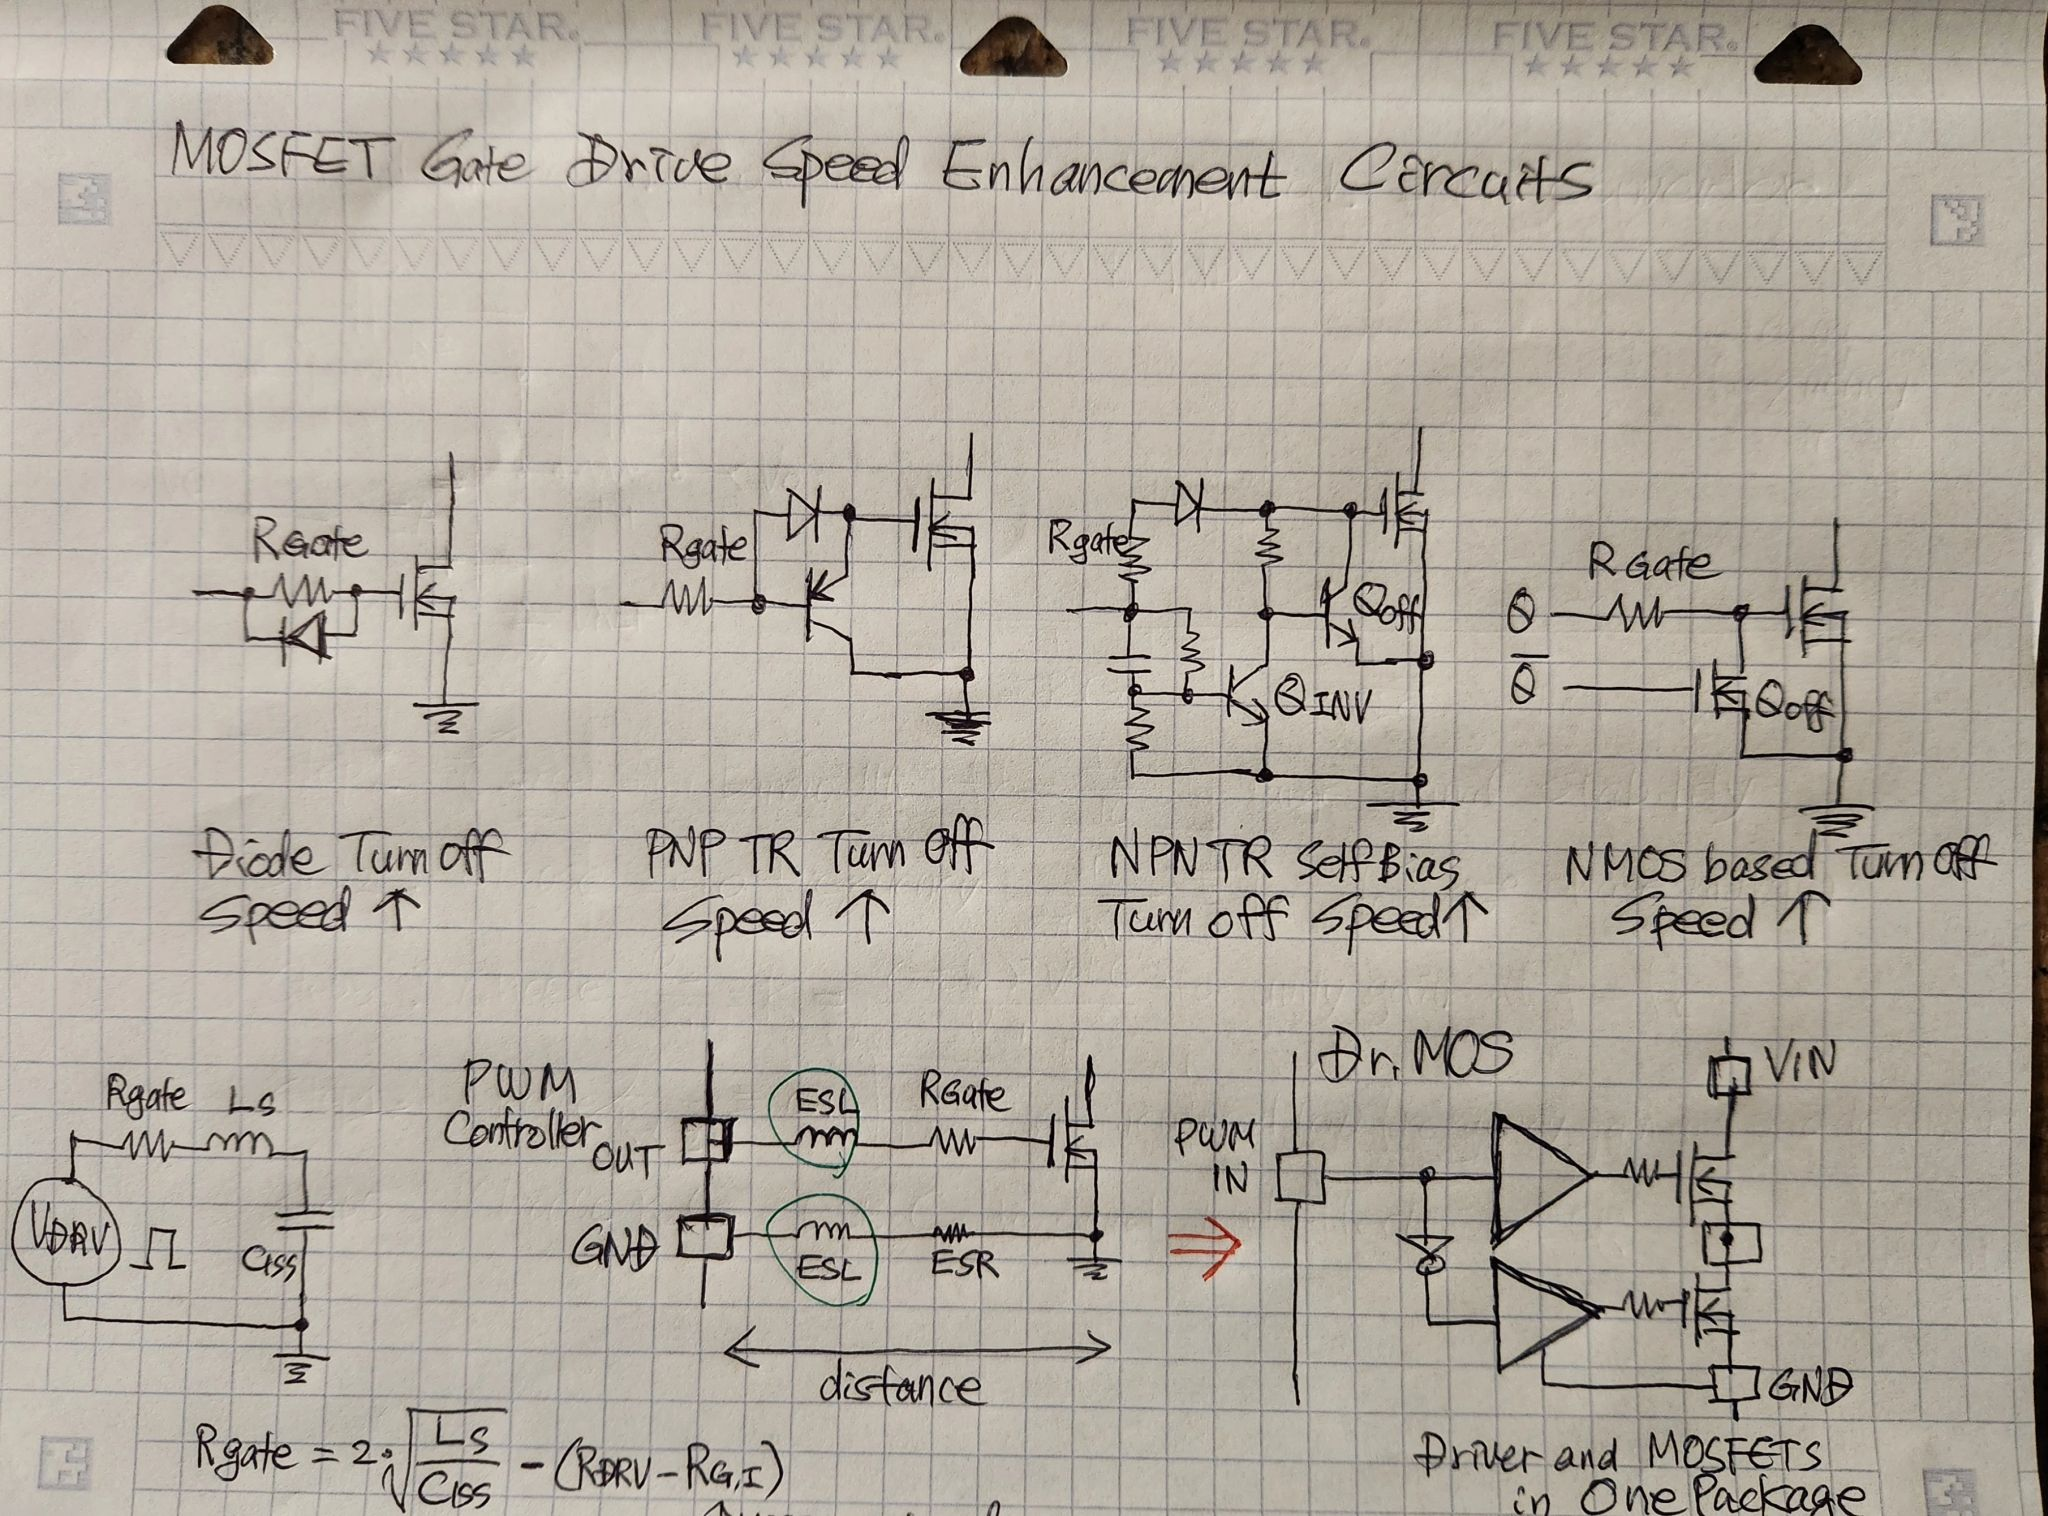 FIVE STAR. FIVE STAR. FIVE STAR. FIVE STAR.
MOSFET Gate Drive Speed Enhancement Circuits
RGate
Rgate
Rgate
Qoff
QINV
RGate
Q
Q̅
Qoff
Diode Turn off
Speed ↑
PNP TR Turn Off
Speed ↑
NPN TR Self Bias
Turn off Speed ↑
NMOS based Turn Off
Speed ↑
Rgate Ls
VDRV
Ciss
PWM
Controller
OUT
GND
ESL
RGate
ESL
ESR
distance
Dr. MOS
PWM
IN
VIN
GND
Rgate = 2·√(Ls/Ciss) - (RDRV - RG,I)
Driver and MOSFETS
in One Package